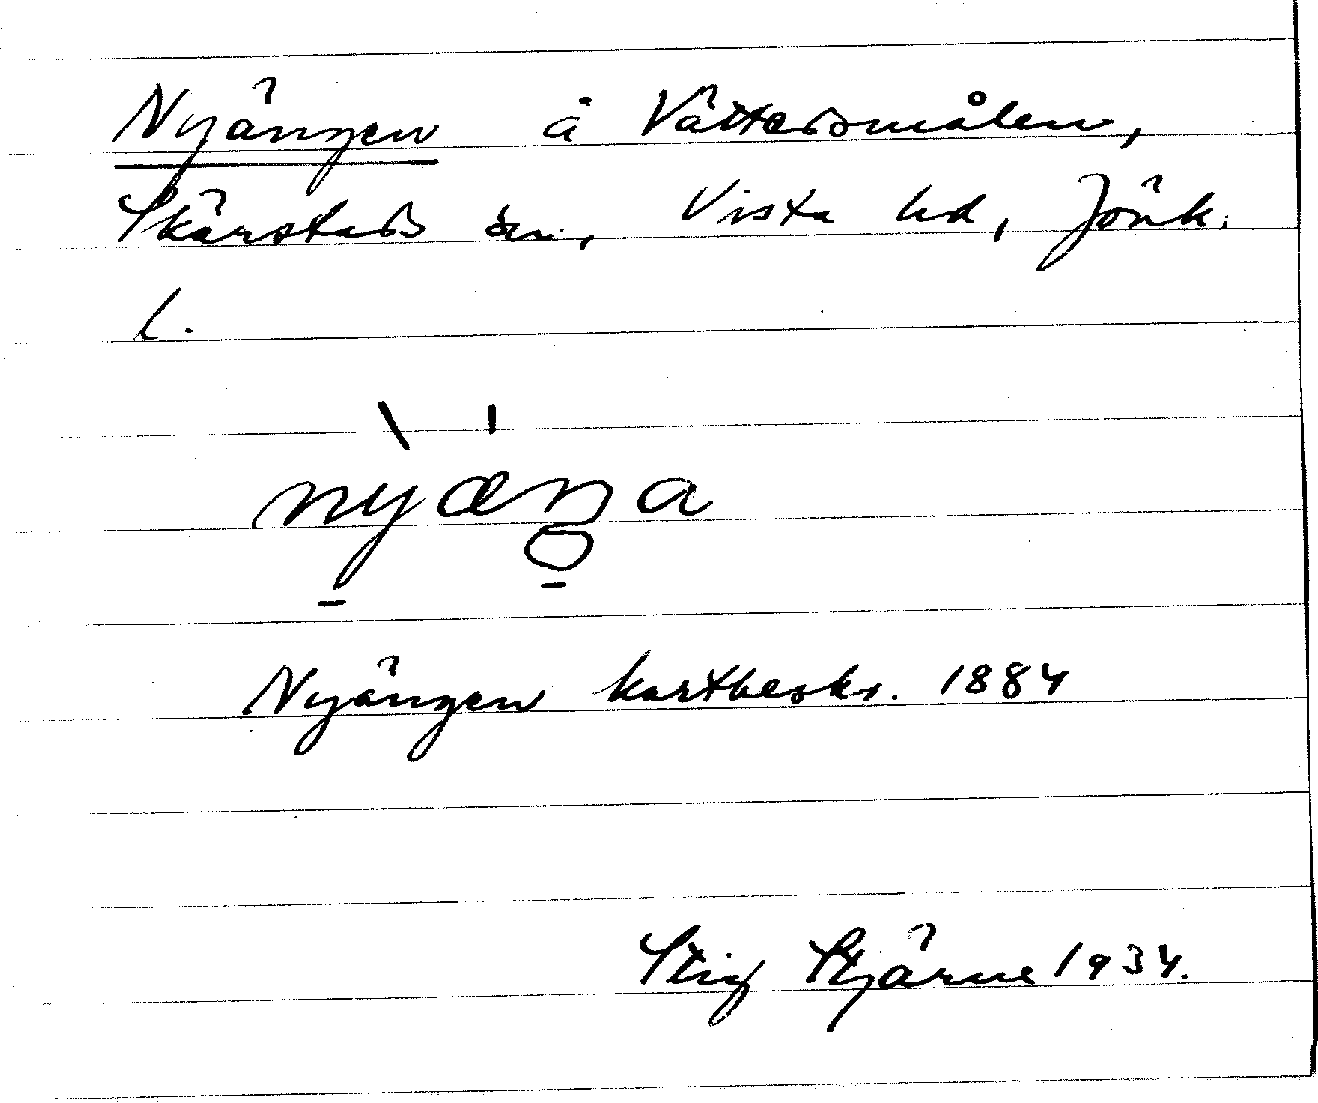 Nyängen å Vättersmålen,
Skärstads sn., Vista hd, Jönk.
l.
nỳæ̍ŋa
Nyängen kartbeskr. 1884
Stig Stjärne 1934.